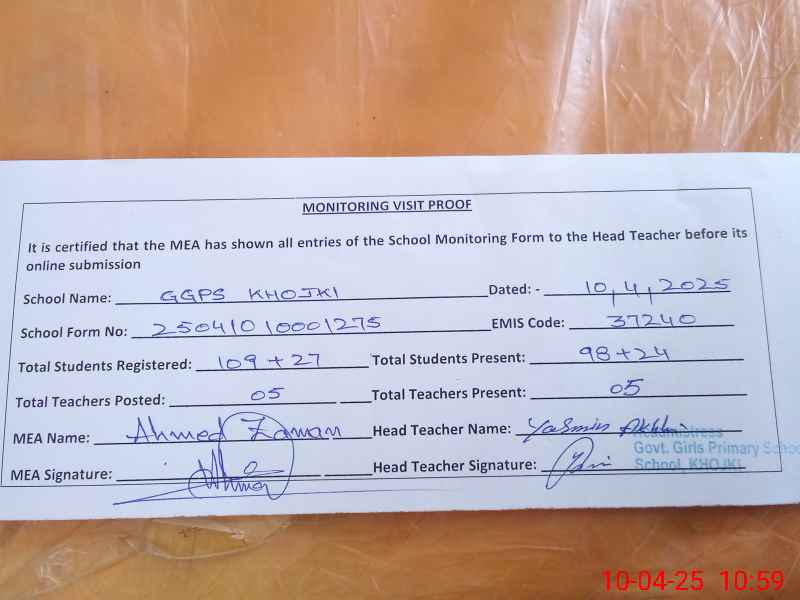 MONITORING VISIT PROOF
It is certified that the MEA has shown all entries of the School Monitoring Form to the Head Teacher before its
online submission
School Name: GGPS KHOJKI Dated: - 10,4,2025
School Form No: 25041010001275 EMIS Code: 37240
Total Students Registered: 109+27 Total Students Present: 98+24
Total Teachers Posted: 05 Total Teachers Present: 05
MEA Name: Ahmed Zaman Head Teacher Name: Yasmin Akhtar
Headmistress
Govt. Girls Primary School
MEA Signature: Head Teacher Signature:
School, KHOJKI
10-04-25 10:59